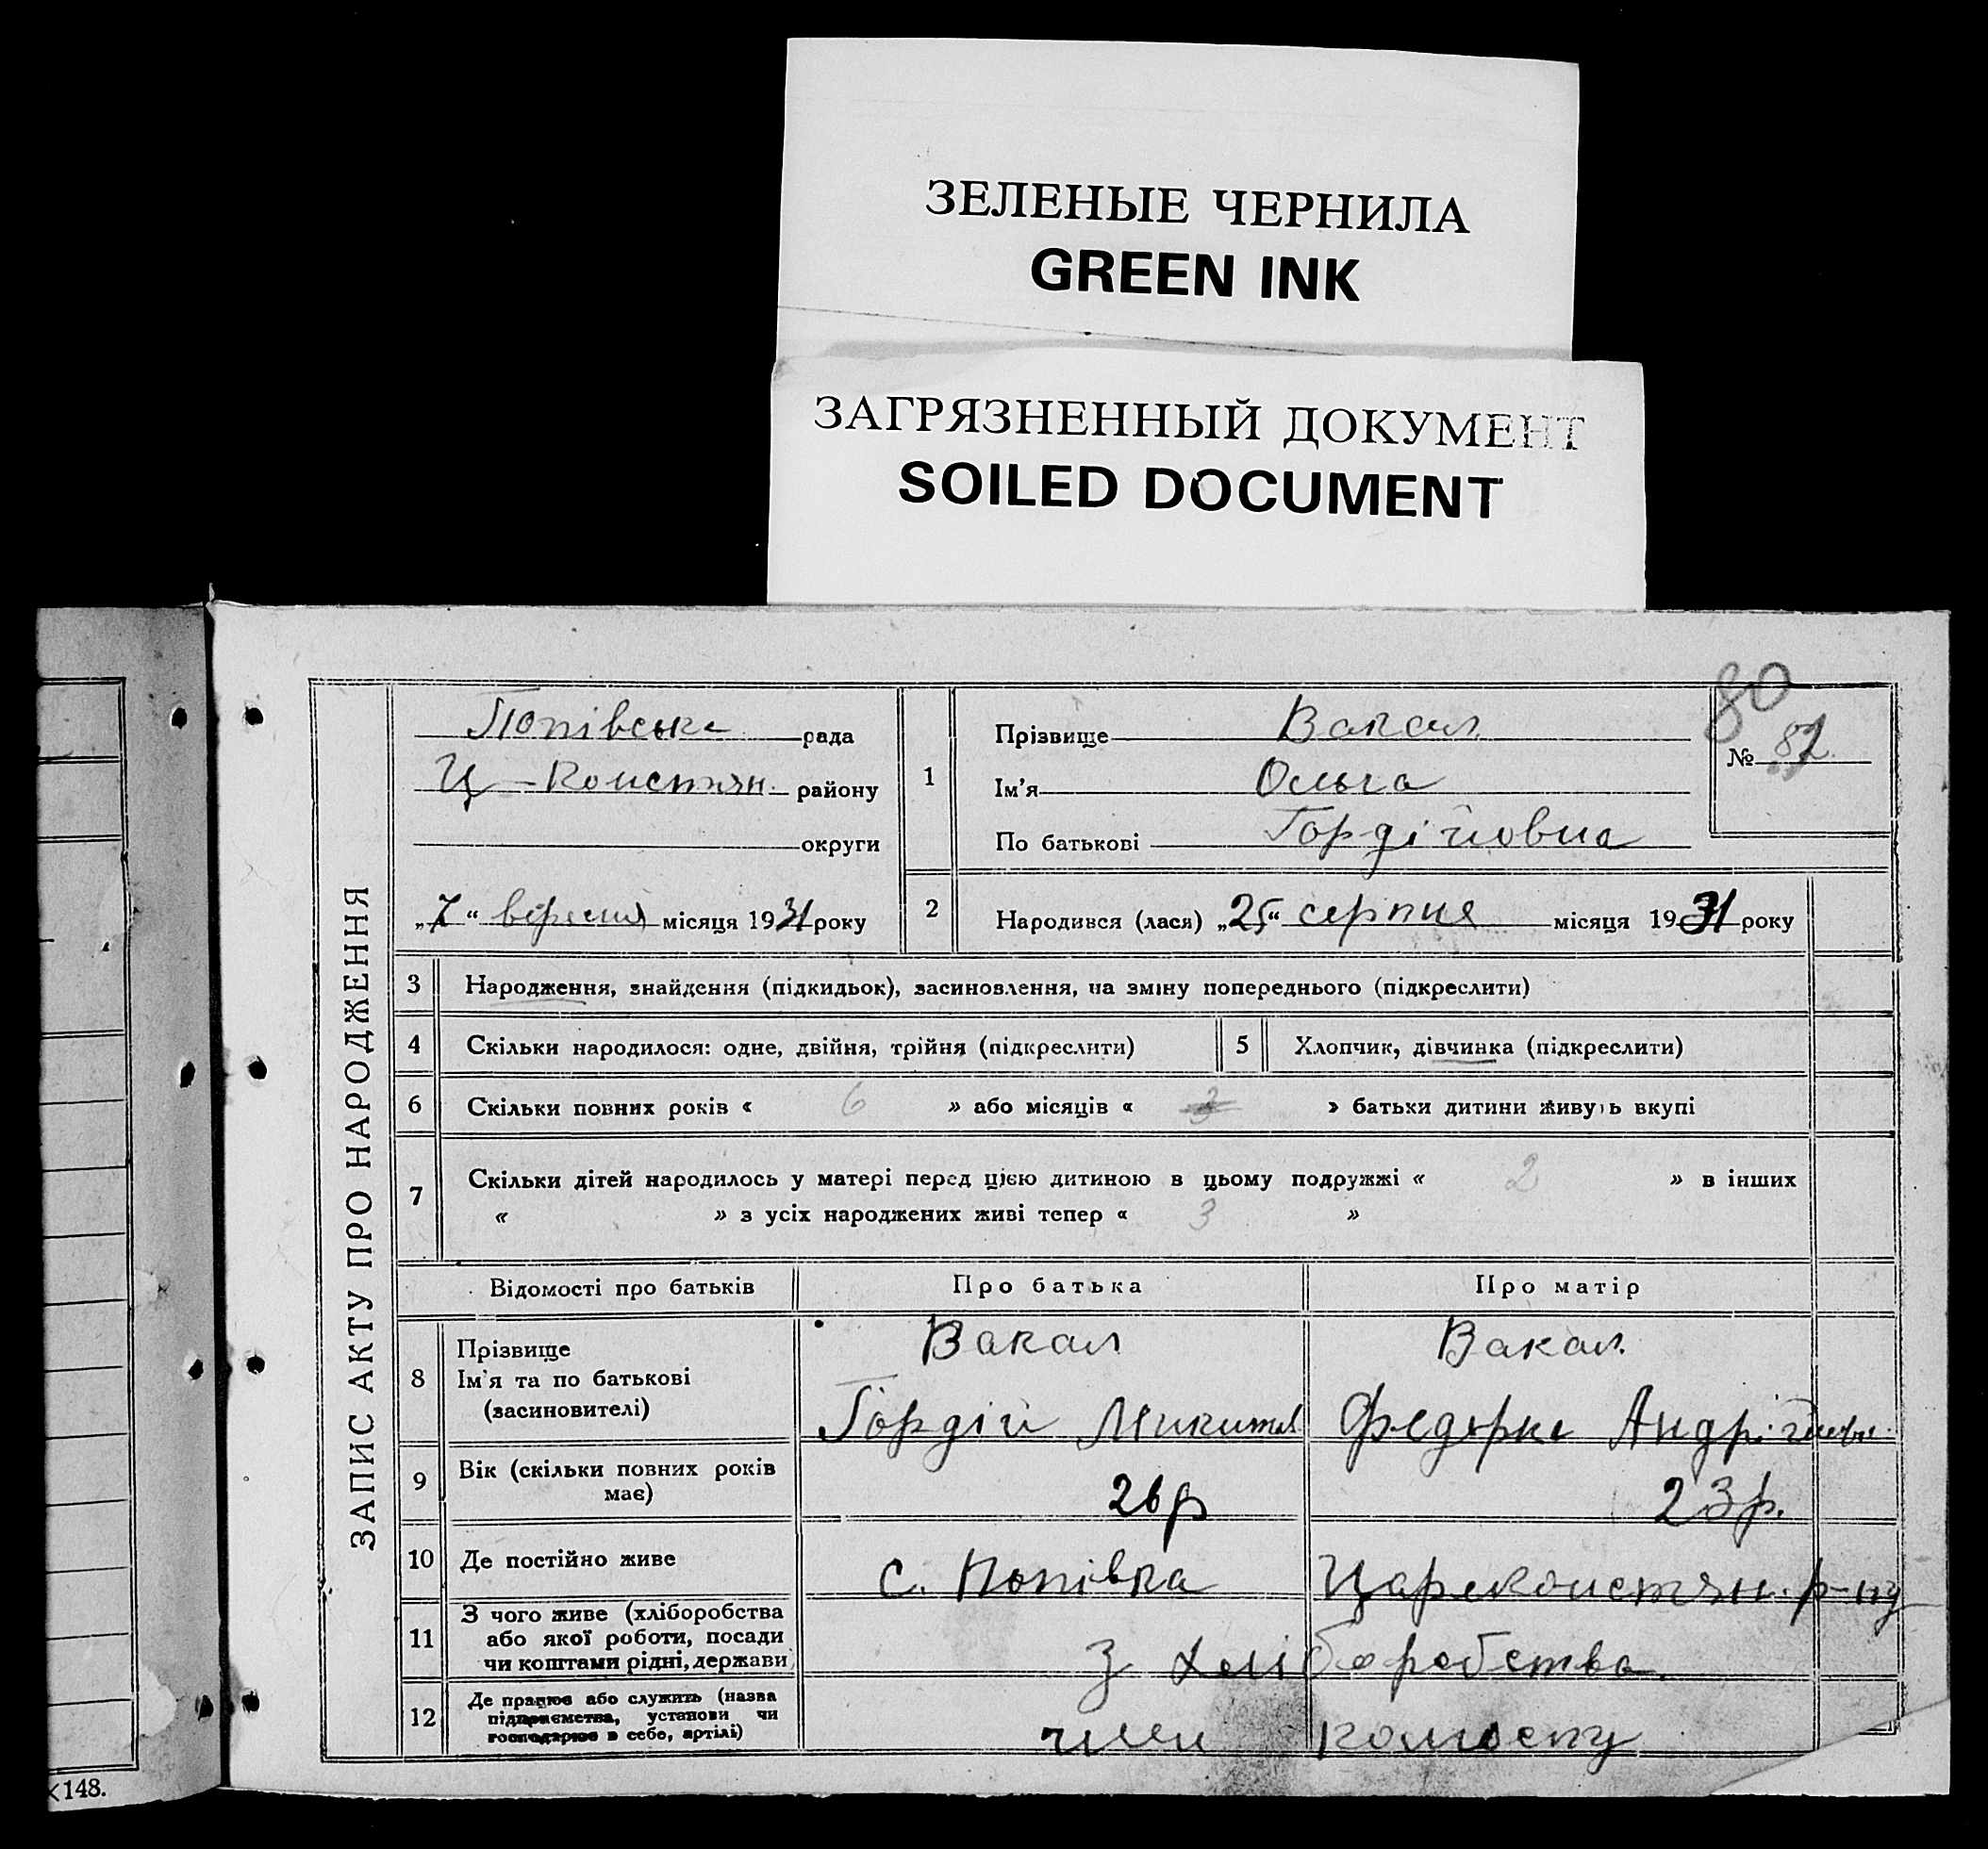 ЗЕЛЕНЫЕ ЧЕРНИЛА
GREEN INK
ЗАГРЯЗНЕННЫЙ ДОКУМЕНТ
SOILED DOCUMENT
ЗАПИС АКТУ ПРО НАРОДЖЕННЯ
Попівська рада
Ц-Констян. району
округи
„7“ вересня місяця 1931 року
1
Прізвище Вакал
Ім'я Ольга
По батькові Гордіївна
80
№ 82
2 Народився (лася) „25“ серпня місяця 1931 року
3 Народження, знайдення (підкидьок), засиновлення, на зміну попереднього (підкреслити)
4 Скільки народилося: одне, двійня, трійня (підкреслити) 5 Хлопчик, дівчинка (підкреслити)
6 Скільки повних років « 6 » або місяців « 3 » батьки дитини живуть вкупі
7 Скільки дітей народилось у матері перед цією дитиною в цьому подружжі « 2 » в інших
« » з усіх народжених живі тепер « 3 »
Відомості про батьків Про батька Про матір
8 Прізвище
Ім'я та по батькові
(засиновителі)
Вакал Вакал.
Гордій Микитов Федорка Андріївн.
9 Вік (скільки повних років
має)
26 р 23 р.
10 Де постійно живе с. Попівка Царекостян. р-ну
11 З чого живе (хліборобства
або якої роботи, посади
чи коштами рідні, держави)
З хліборобства.
12 Де працює або служить (назва
підприємства, установи чи
господарює в себе, артілі)
член колгоспу
148.